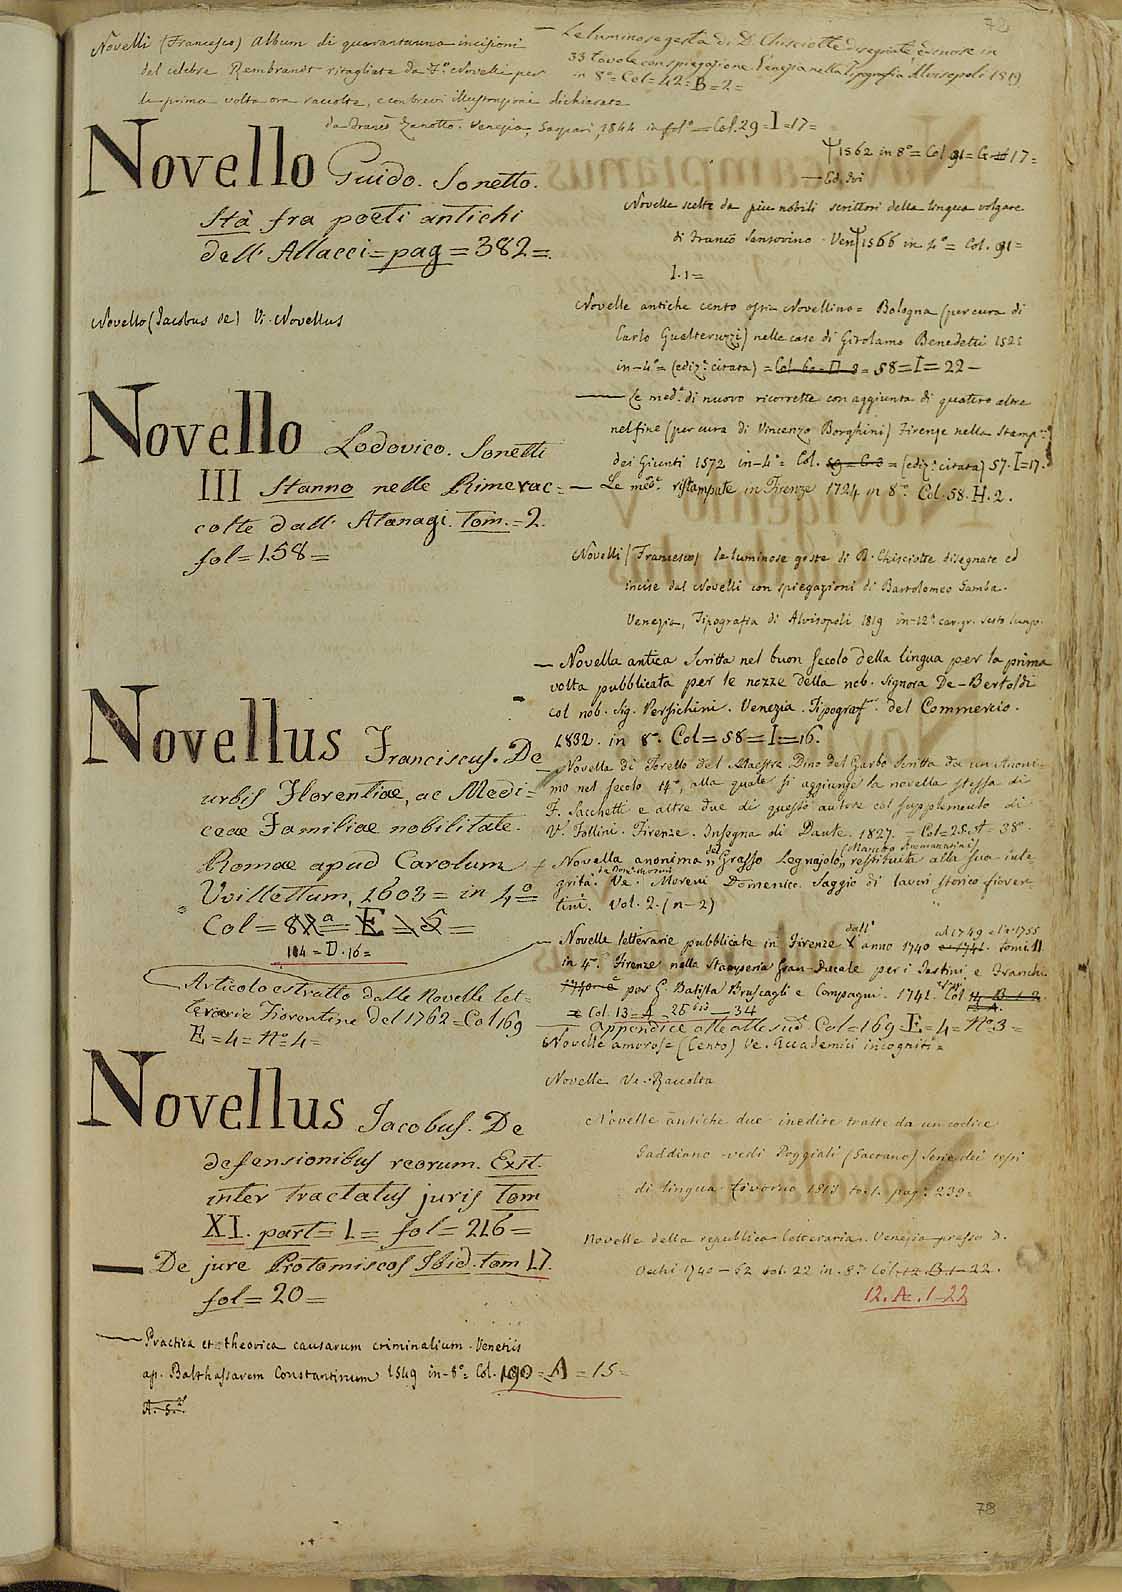 Novelli (Francesco) Album di quarantauna incisioni
del celebre Rembrandt ritagliate da F.º Novelli per
la prima volta ora raccolte, e con brevi illustrazioni dichiarate
da Franc.º Zanotto. Venezia, Gaspari, 1844 in fol.º = Col. 29 = I = 17 =
Novello Guido. Sonetto.
Stà fra poeti antichi
dell' Allacci = pag = 382 =
Novello (Jacobus de) Vi. Novellus
Novello Lodovico. Sonetti
III Stanno nelle Rime rac=
colte dall' Atanagi. tom. = 2.
fol = 158 =
Novellus Franciscus. De
urbis Florentiae, ac Medi=
ceae Familiae nobilitate.
Romae apud Carolum
Vuillettum, 1603 = in 4º =
Col = 82ª = E = 5 =
104 = D. 16 =
Articolo estratto dalle Novelle let=
terarie Fiorentine del 1762 = Col 169
E = 4 = Nº 4 =
Novellus Jacobus. De
defensionibus reorum. Exit.
inter tractatus juris tom
XI. part = 1 = fol = 216 =
— De jure Protomiseos Ibid. tom 17.
fol = 20 =
— Practica et theorica causarum criminalium. Venetiis
ap. Balthassarem Constantinum 1549 in-8º = Col. 190 = A = 15 =
— Le luminose gesta di D. Chisciotte disegnate, e incise in
33 tavole con spiegazione Venezia nella Tipografia Alvisopoli 1819
in 8º = Col = 42 = B = 2 =
1562 in 8º = Col 91 = 17 =
— Ed. ivi
Novelle scelte da più nobili scrittori della lingua volgare
di Franc.º Sansovino. Ven 1566 in 4º = Col. 91 =
I. 1 =
Novelle antiche cento ossia Novellino = Bologna (per cura di
Carlo Gualteruzzi) nelle case di Girolamo Benedetti 152
in-4º = (ediz.e citata) = Col. 60 = D. 3 = 58 = I = 22 —
— Le med.e di nuovo ricorrette con aggiunta di quattro altre
nel fine (per cura di Vincenzo Borghini) Firenze nella Stamp.a
dei Giunti 1572 in-4º = Col. 59 = C. 3 = (ediz.e citata) 57. I = 17.
— Le med.e ristampate in Firenze 1724 in 8º Col. 58. H. 2.
Novelli (Francesco) le luminose geste di D. Chisciotte disegnate ed
incise dal Novelli con spiegazioni di Bartolomeo Gamba.
Venezia, Tipografia di Alvisopoli 1819 in-12º car. gr. sesto lungo.
— Novella antica scritta nel buon secolo della lingua per la prima
volta pubblicata per le nozze della nob. signora De-Bertoldi
col nob. sig. Persichini. Venezia. Tipograf. del Commercio.
1832. in 8º. Col = 58 = I = 16.
— Novella di Torello del Maestro Dino del Garbo scritta da un Anoni-
mo nel secolo 14º, alla quale si aggiunge la novella stessa di
F. Sacchetti e altre due di questo autore col supplemento di
V. Follini. Firenze. Insegna di Dante. 1827. = Col = 25. A = 38.
(Manetto Ammannatini)
+ Novella anonima del "Grasso Legnajolo" restituita alla sua inte
da Dom.º Moreni
grità. Ve. Moreni Domenico. Saggio di lavori storico fioren-
tini. Vol. 2. (n-2)
— Novelle letterarie pubblicate in Firenze dall' anno 1740 al 1749 e la 1755 e 1741. tomi 11
in 4º. Firenze nella Stamperia Gran-Ducale per i Tartini e Franchi
1740 e per G. Batista Bruscagli e Compagni. 1741. Col 14 B 1 2
= Col. 13 = A = 25 bis — 34
— Appendice alle alle sud.e Col = 169 E = 4 = Nº 3 =
Novelle amorose (Cento) Ve. Accademici incogniti =
Novelle Ve. Raccolta
Novelle antiche due inedite tratte da un codice
Gaddiano vedi Poggiali (Gaetano) Serie dei testi
di lingua. Livorno 1813 to. 1. pag. 239.
Novelle della repubblica letteraria. Venezia presso D.
Occhi 1740 — 62 vol. 22 in 8º Col. 12 B. 1 — 22.
12. A. 1 — 22
78